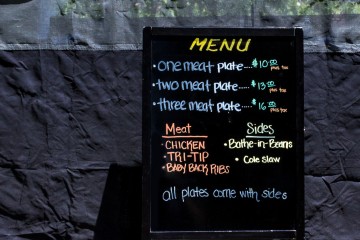 MENU
• one meat plate.....$10.00 plus tax
• two meat plate.....$13.00 plus tax
• three meat plate....$16.00 plus tax
Meat
• CHICKEN
• TRI-TIP
• BABY BACK RIBS
Sides
• Bathe-in-Beans
• Cole Slaw
all plates come with sides